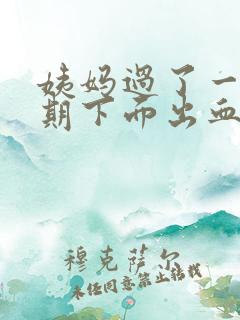 姨妈过了一
期下面出血
穆克萨尔
未经同意禁止转载